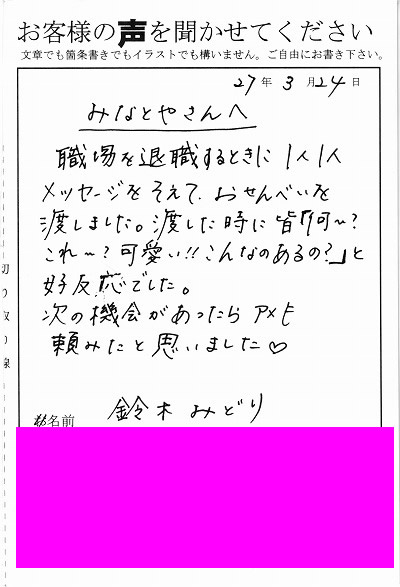 お客様の声を聞かせてください
文章でも箇条書きでもイラストでも構いません。ご自由にお書き下さい。
27年 3月24日
みなとやさんへ
職場を退職するときに1人1人
メッセージをそえて、おせんべいを
渡しました。渡した時に皆「何～?
これ～?可愛い!!こんなのあるの?」と
好反応でした。
次の機会があったらアメも
頼みたと思いました♡
鈴木みどり
お名前
切り取り線